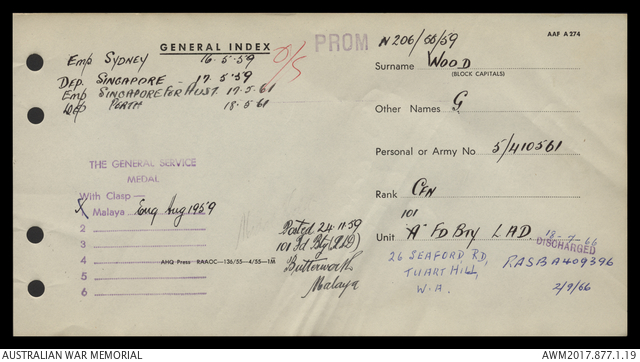 GENERAL INDEX
PROM
N206/55/59
AAF A 274
Emp SYDNEY 16.5.59
O/S
DEP. SINGAPORE - 17.5.59
Emp SINGAPORE FOR AUST. 17.5.61
DEP PERTH 18.5.61
Surname WOOD
(BLOCK CAPITALS)
Other Names G.
Personal or Army No 5/410561
Rank CFN
101
Unit "A" FD BTY LAD.
18-7-66
DISCHARGED
26 SEAFORD RD, RASBA409396
TUART HILL,
W.A. 2/9/66
THE GENERAL SERVICE
MEDAL
With Clasp—
X Malaya Enq Aug 1959
2
3
4
5
6
Posted 24.11.59
101 Fd Bty (LAD)
Butterworth
Malaya
AHQ Press RAAOC—136/55—4/55—1M
AUSTRALIAN WAR MEMORIAL
AWM2017.877.1.19